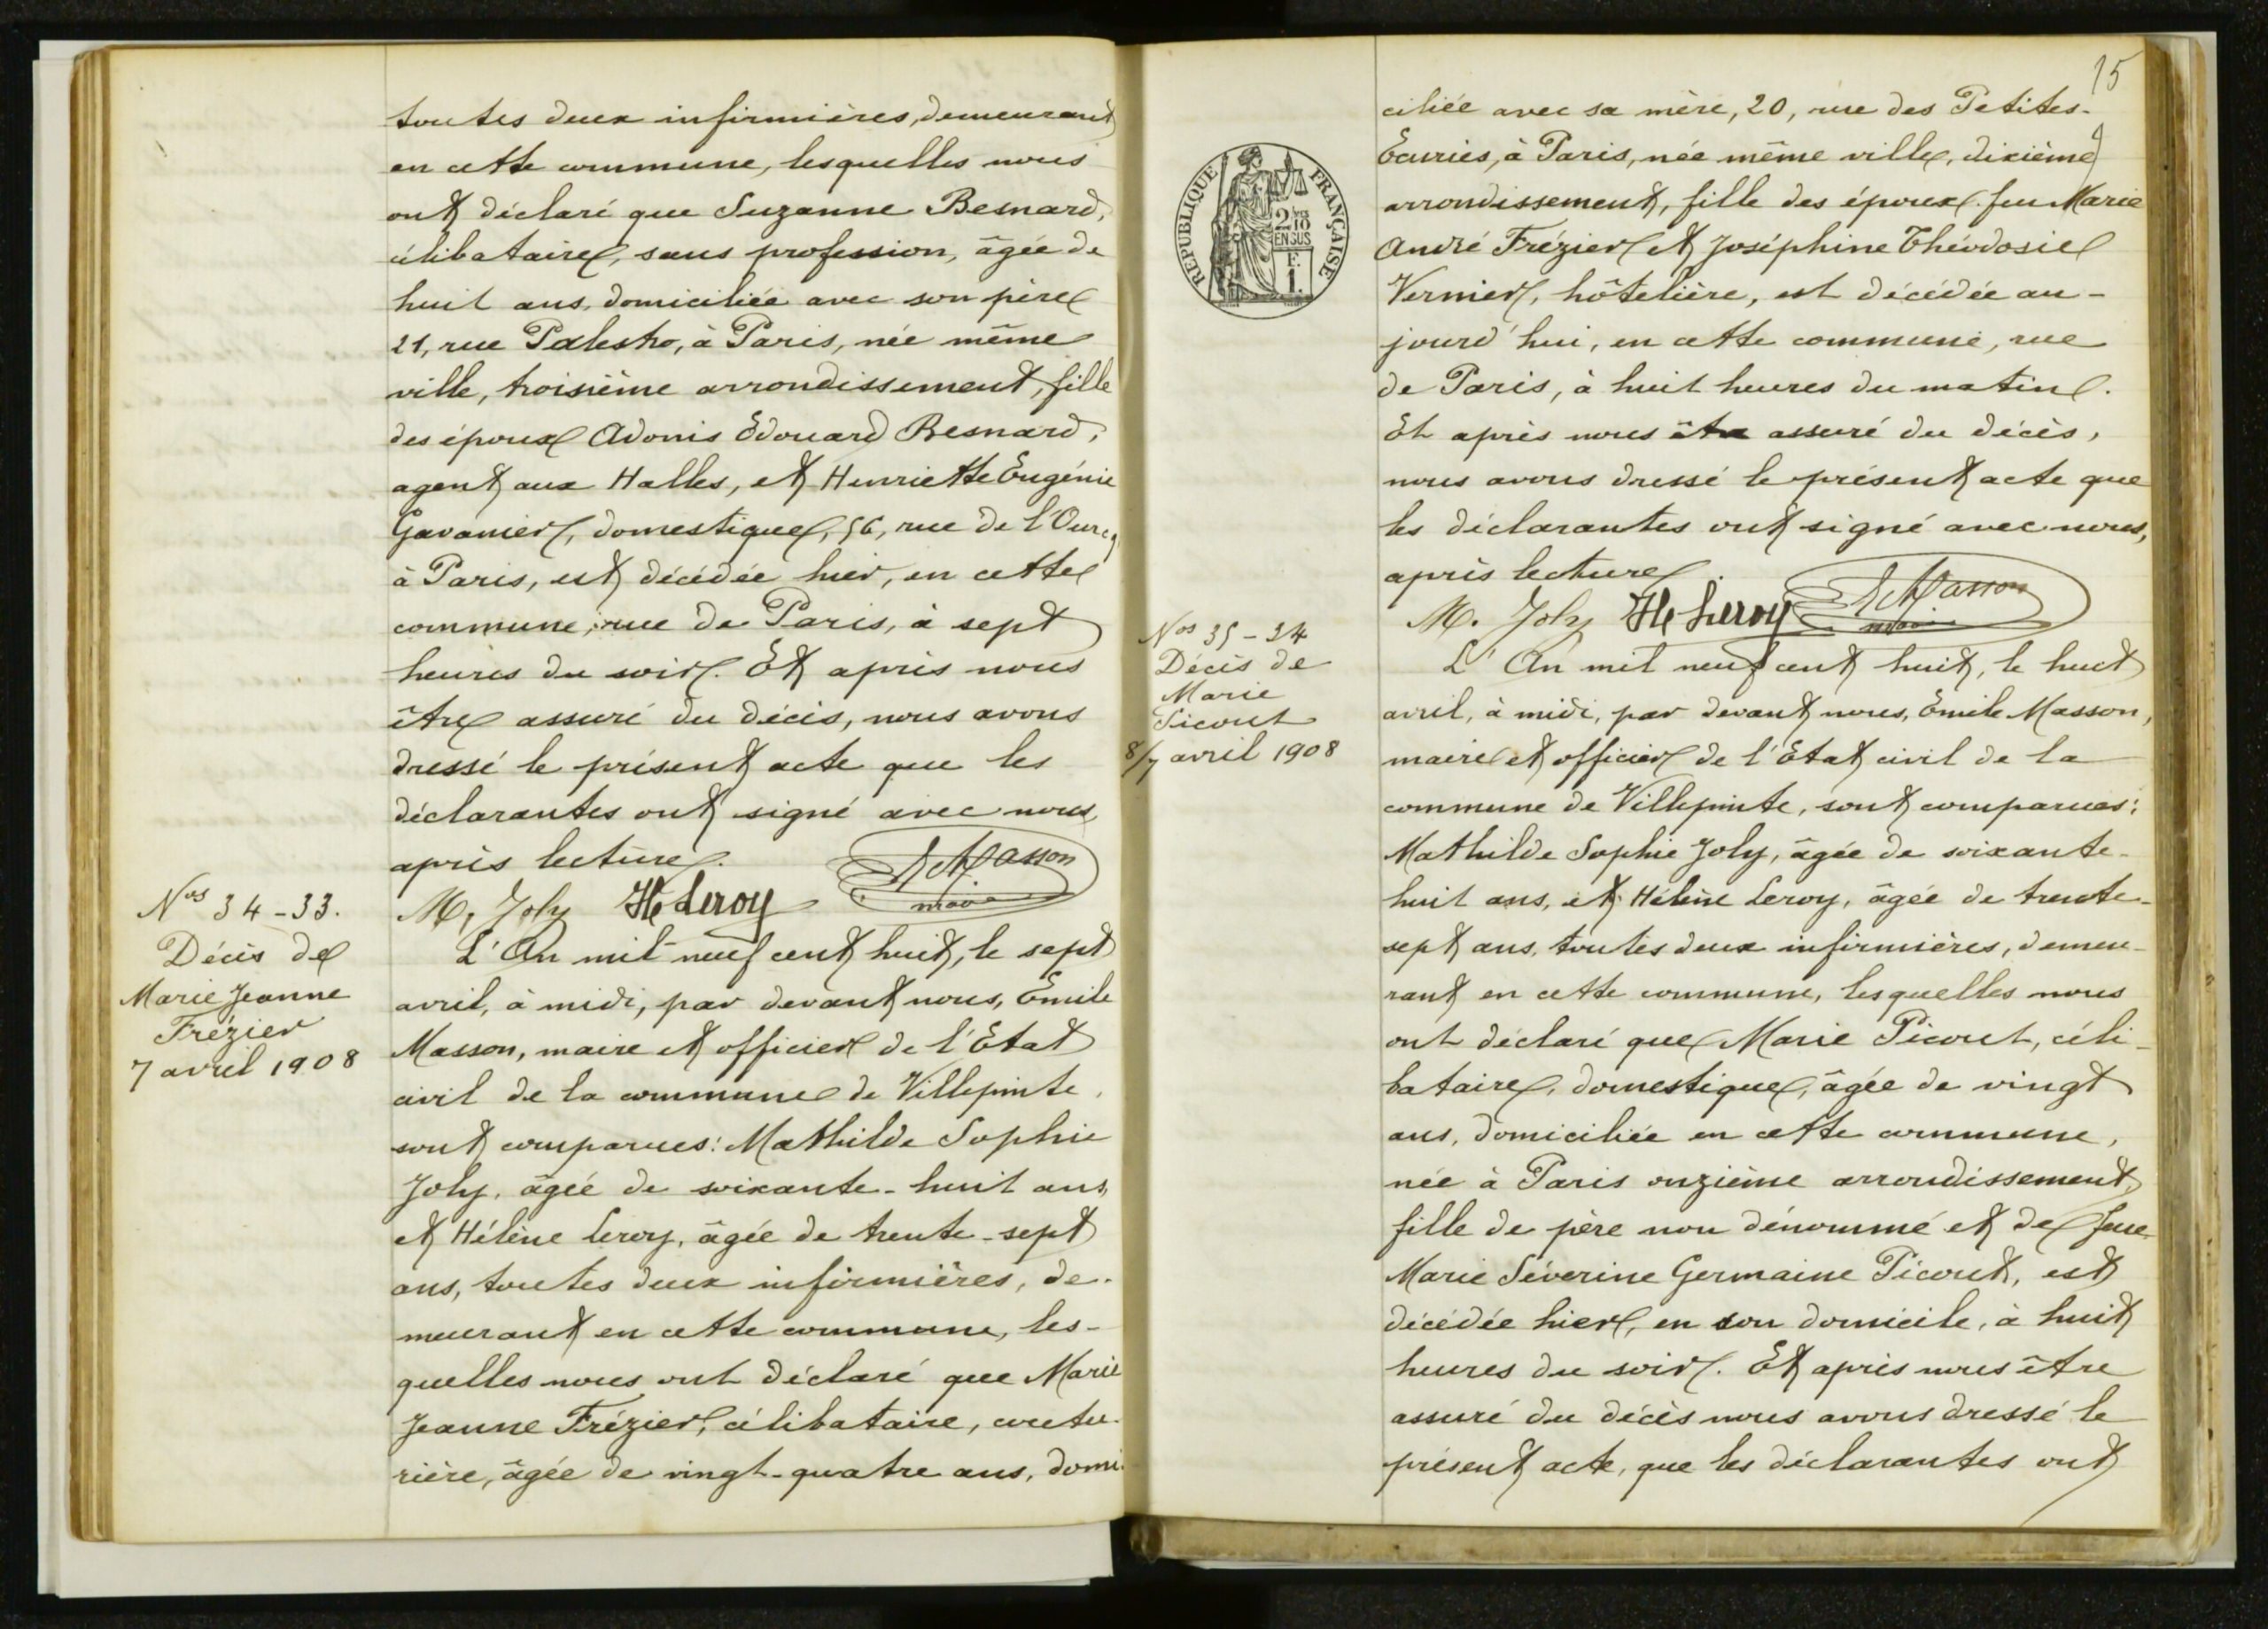 toutes deux infirmières, demeurant
en cette commune, lesquelles nous
ont déclaré que Suzanne Besnard,
célibataire, sans profession, âgée de
huit ans, domiciliée avec son père
21, rue Palestro, à Paris, née même
ville, troisième arrondissement, fille
des époux Adonis Edouard Besnard,
agent aux Halles, et Henriette Eugénie
Gavanier, domestique, 56, rue de l'Ourcq
à Paris, est décédée hier, en cette
commune, rue de Paris, à sept
heures du soir. Et après nous
être assuré du décès, nous avons
dressé le présent acte que les
déclarantes ont signé avec nous,
après lecture.
M. Joly He Leroy E Masson
maire
Nos 34-33.
Décès de
Marie Jeanne
Frézier
7 avril 1908
L'An mil neuf cent huit, le sept
avril, à midi, par devant nous, Emile
Masson, maire et officier de l'Etat
civil de la commune de Villepinte,
sont comparues: Mathilde Sophie
Joly, âgée de soixante-huit ans,
et Hélène Leroy, âgée de trente-sept
ans, toutes deux infirmières, de-
meurant en cette commune, les-
quelles nous ont déclaré que Marie
Jeanne Frézier, célibataire, coutu-
rière, âgée de vingt-quatre ans, domi-
15
ciliée avec sa mère, 20, rue des Petites-
Ecuries, à Paris, née même ville, dixième
arrondissement, fille des époux feu Marie
André Frézier et Joséphine Théodosie
Vernier, hôtelière, est décédée au-
jourd'hui, en cette commune, rue
de Paris, à huit heures du matin.
Et après nous être assuré du décès,
nous avons dressé le présent acte que
les déclarantes ont signé avec nous,
après lecture.
M. Joly He Leroy E Masson
maire
RÉPUBLIQUE FRANÇAISE
2/10
EN SUS
F.
1.
Nos 35-34
Décès de
Marie
Picout
8/7 avril 1908
L'An mil neuf cent huit, le huit
avril, à midi, par devant nous, Emile Masson,
maire et officier de l'Etat civil de la
commune de Villepinte, sont comparues:
Mathilde Sophie Joly, âgée de soixante-
huit ans, et Hélène Leroy, âgée de trente-
sept ans, toutes deux infirmières, demeu-
rant en cette commune, lesquelles nous
ont déclaré que Marie Picout, céli-
bataire, domestique, âgée de vingt
ans, domiciliée en cette commune,
née à Paris onzième arrondissement,
fille de père non dénommé et de feue
Marie Séverine Germaine Picout, est
décédée hier, en son domicile, à huit
heures du soir. Et après nous être
assuré du décès nous avons dressé le
présent acte, que les déclarantes ont